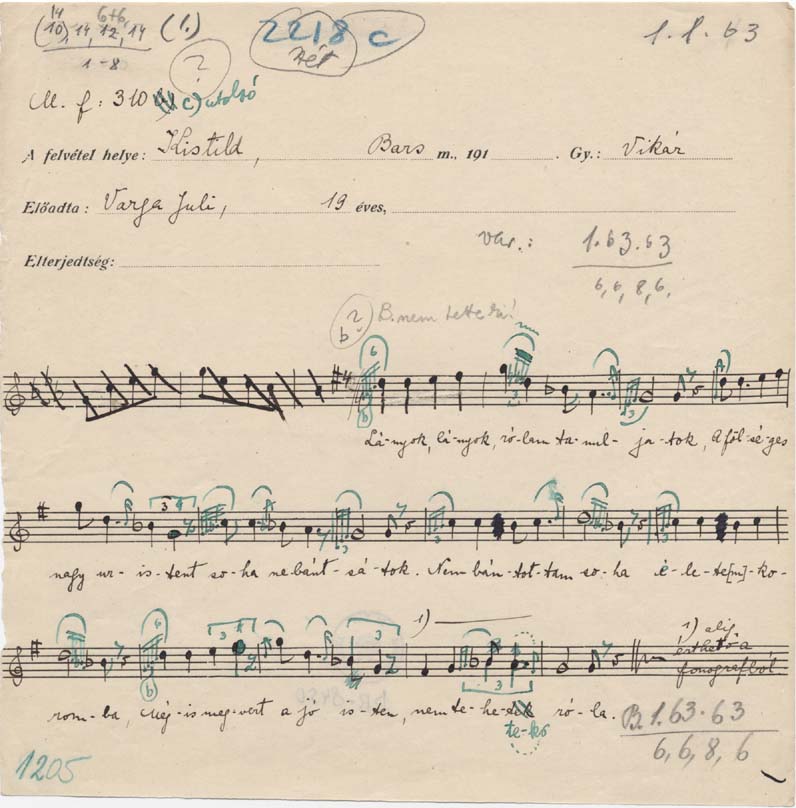 14 6+6,
(10), 14, 12, 14 (1.) 2218 c 1. 1. 63
1-8 ? két
M. f: 310 c) utolsó
A felvétel helye: Kistild, Bars m., 191 . Gy.: Vikár
Előadta: Varga Juli, 19 éves,
var.: 1. 63. 63
Elterjedtség:
6, 6, 8, 6,
? b B. nem tette rá!
Lá-nyok, lá-nyok, ró-lam ta-nul- ja-tok, A föl-sé-ges
nagy ur-is-tent so-ha ne bánt-sá-tok. Nem bán-tot-tam so-ha é-le-te[m]-ko-
1) 1) alig
érthető a
fonográfból
rom-ba, Még-is meg-vert a jó is-ten, nem te-he-tek ró-la. B. 1. 63. 63
te-ko 6, 6, 8, 6
1205